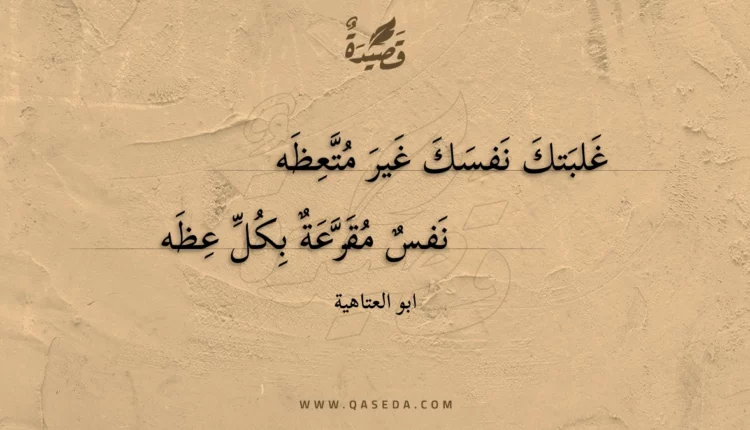 قَصِيدَةٌ
غَلبَتكَ نَفسَكَ غَيرَ مُتَّعِظَه
نَفسٌ مُقَرَّعَةٌ بِكُلِّ عِظَه
ابو العتاهية
WWW.QASEDA.COM